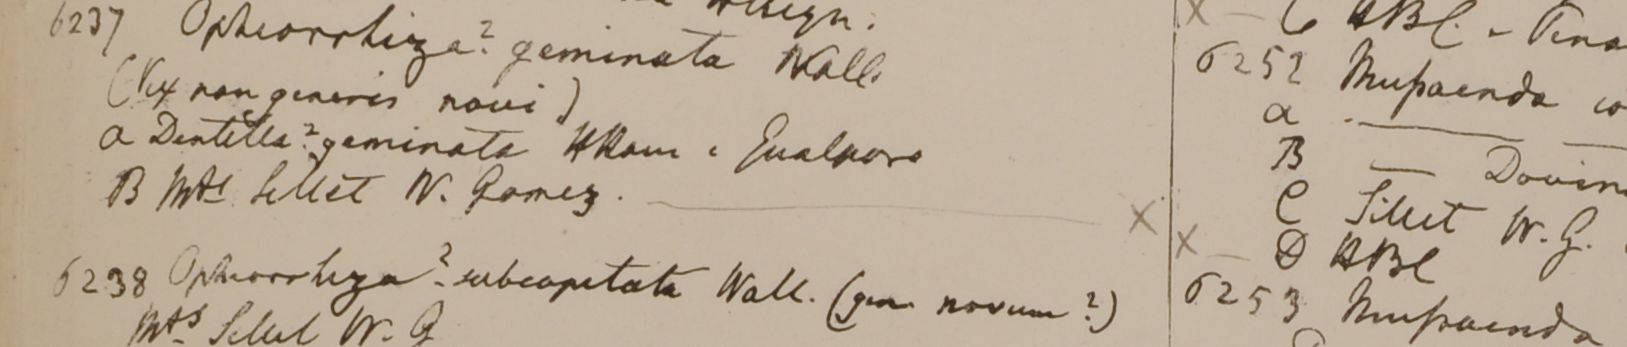 6237 Ophiorrhiza? geminata Wall.
(Vix non generis novi)
a Dentella? geminata HRoxb
B Mts Sillet W. Gomez.
X
6238 Ophiorrhiza? subcapitata Wall. (gen. novum?)
Mts Sillet W. G
X — C HBC
6252 Mussaenda
a —
B —
C Sillet W. G.
X — D HBC
6253 Mussaenda